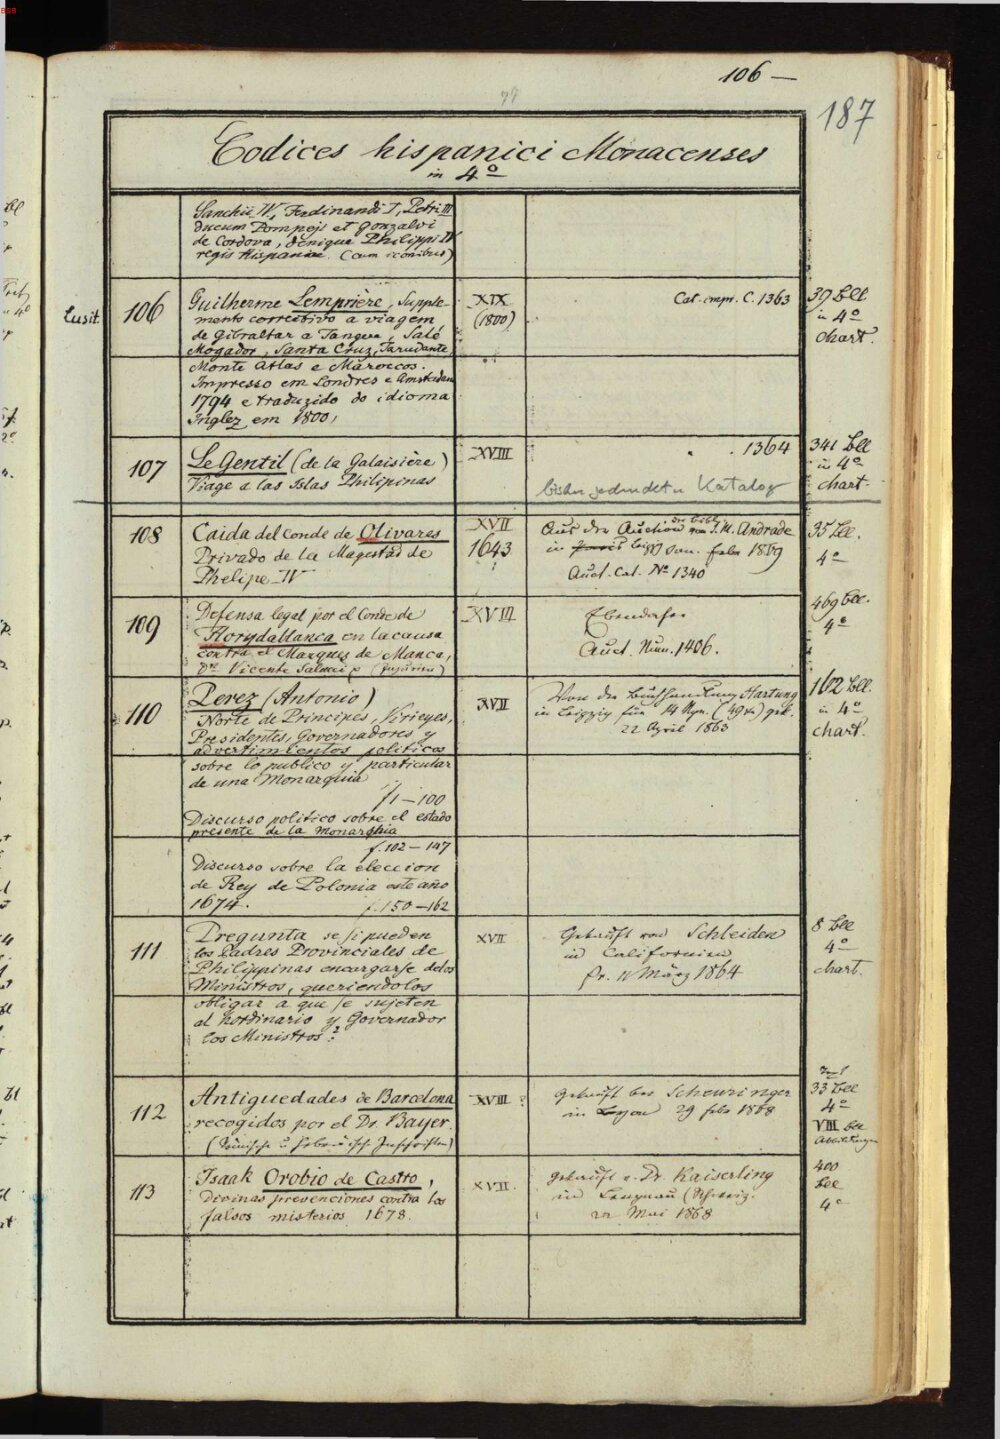 106 —
187
77
Codices hispanici Monacenses
in 4º
Sanchii IV, Ferdinandi I, Petri III
ducum Pompeji et Gonzalvi
de Cordova, denique Philippi IV
regis Hispaniae. (cum iconibus)
Lusit.
106
Guilherme Lemprière, Supple-
mento correctivo a viagem
de Gibraltar a Tanger, Salé
Mogador, Santa Cruz, Tarudante,
Monte Atlas e Maroccos.
Impresso em Londres e Amsterdam
1794 e traduzido do idioma
Inglez em 1800,
XIX
(1800)
Cat. impr. C. 1363
39 Bll
in 4º
chart.
107
Le Gentil (de la Galaisière)
Viage a las Islas Philipinas
XVIII
. . 1364
Katalog
341 Bll
in 4º
chart.
108
Caida del Conde de Olivares
Privado de la Magestad de
Phelipe IV
XVII
1643
Aus der Auction der Bibl. J. M. Andrade
in Leipzig 1869
Auct. Cat. Nº 1340
35 Bll.
4º
109
Defensa legal por el Conde de
Floridablanca en la causa
contra el Marques de Manca,
Vicente Salucci
XVIII
Ebendaher
Auct. Num. 1406.
469 Bll.
4º
110
Perez (Antonio)
Norte de Principes, Virieyes,
Presidentes, Governadores y
advertimientos politicos
sobre lo publico y particular
de una Monarquia
f 1—100
Discurso politico sobre el estado
presente de la monarghia
f. 102—147
Discurso sobre la eleccion
de Rey de Polonia este año
1674. f. 150—162
XVII
Von der Buchhandlung Hartung
in Leipzig für 14 Ngr. (49 kr) gek.
22 April 1863
162 Bll.
in 4º
chart.
111
Pregunta se si pueden
los Padres Provinciales de
Philippinas encargarse de los
Ministros, queriendolos
obligar a que se sujeten
al hordinario y Governador
los Ministros?
XVII
Gekauft von Schleiden
in Californien
pr. 11 März 1864
8 Bll
4º
chart.
112
Antiguedades de Barcelona
recogidos por el Dr. Bayer.
(Römische u hebräisch Inschriften)
XVIII
gekauft bei Scheuringer
in Lyon 29 febr 1868
33 Bll
4º
VIII Bll
Abbildungen
113
Isaak Orobio de Castro,
Divinas prevenciones contra las
falsos misterios 1678.
XVII.
gekauft v. Dr. Kaiserling
in Lengnau (Schweiz.
22 Mai 1868
400
Bll
4º